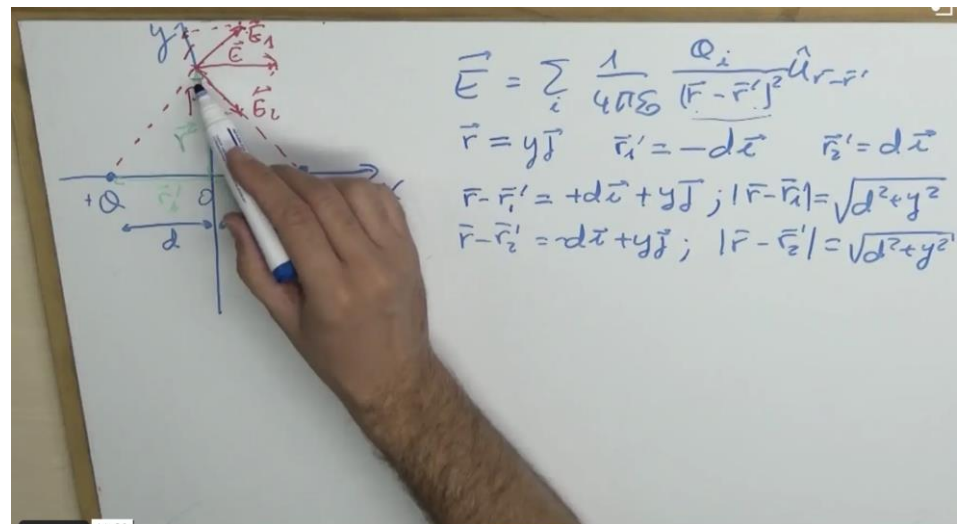 y E⃗₁
E⃗
E⃗₂
P
r⃗
+Q r⃗₁' 0
d
E⃗ = Σᵢ 1/(4πε₀) Qᵢ/(r̄ - r̄')² û r̄-r̄'
r⃗ = yj⃗ r₁⃗' = -di⃗ r₂⃗' = di⃗
r̄-r̄₁' = +di⃗ + yj⃗ ; |r̄-r̄₁'| = √(d²+y²)
r̄-r̄₂' = -di⃗ + yj⃗ ; |r̄-r̄₂'| = √(d²+y²)